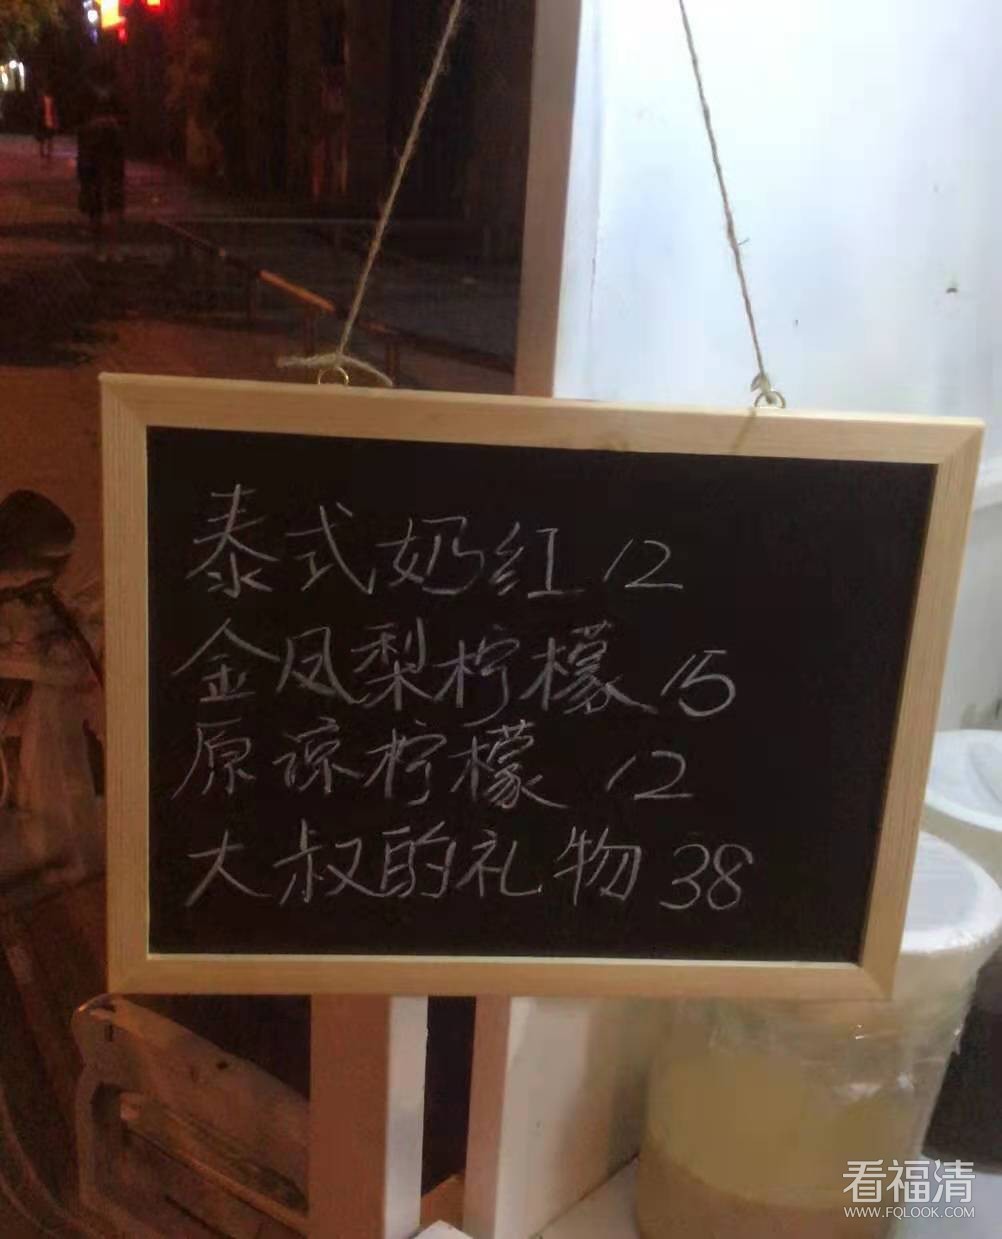 泰式奶红 12
金凤梨柠檬 15
原谅柠檬 12
大叔的礼物 38
看福清
WWW.FQLOOK.COM